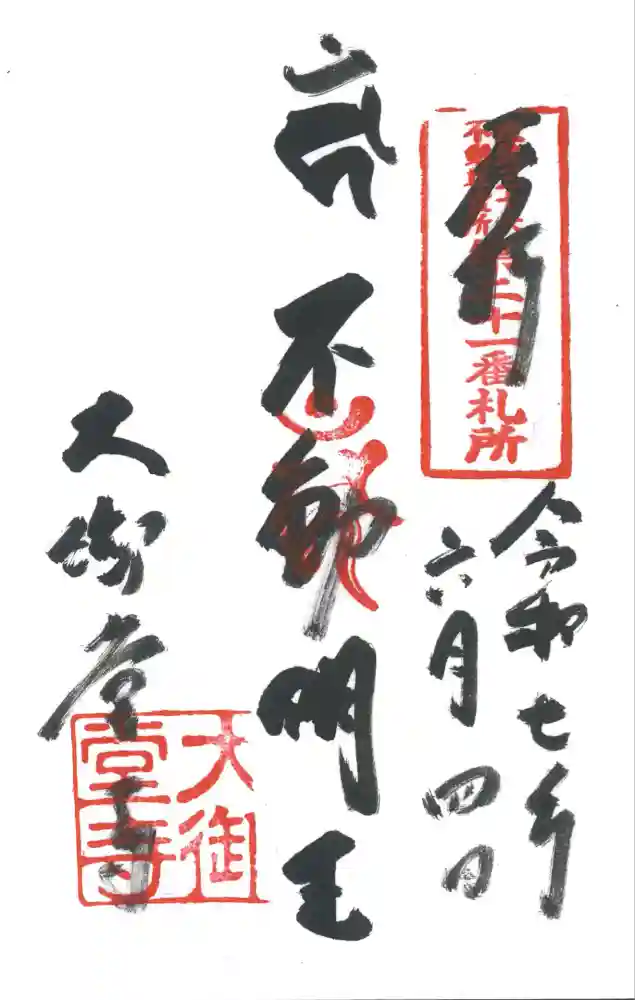 奉拝
二十一番札所
令和七年
六月四日
不動明王
大御堂寺
大御堂寺